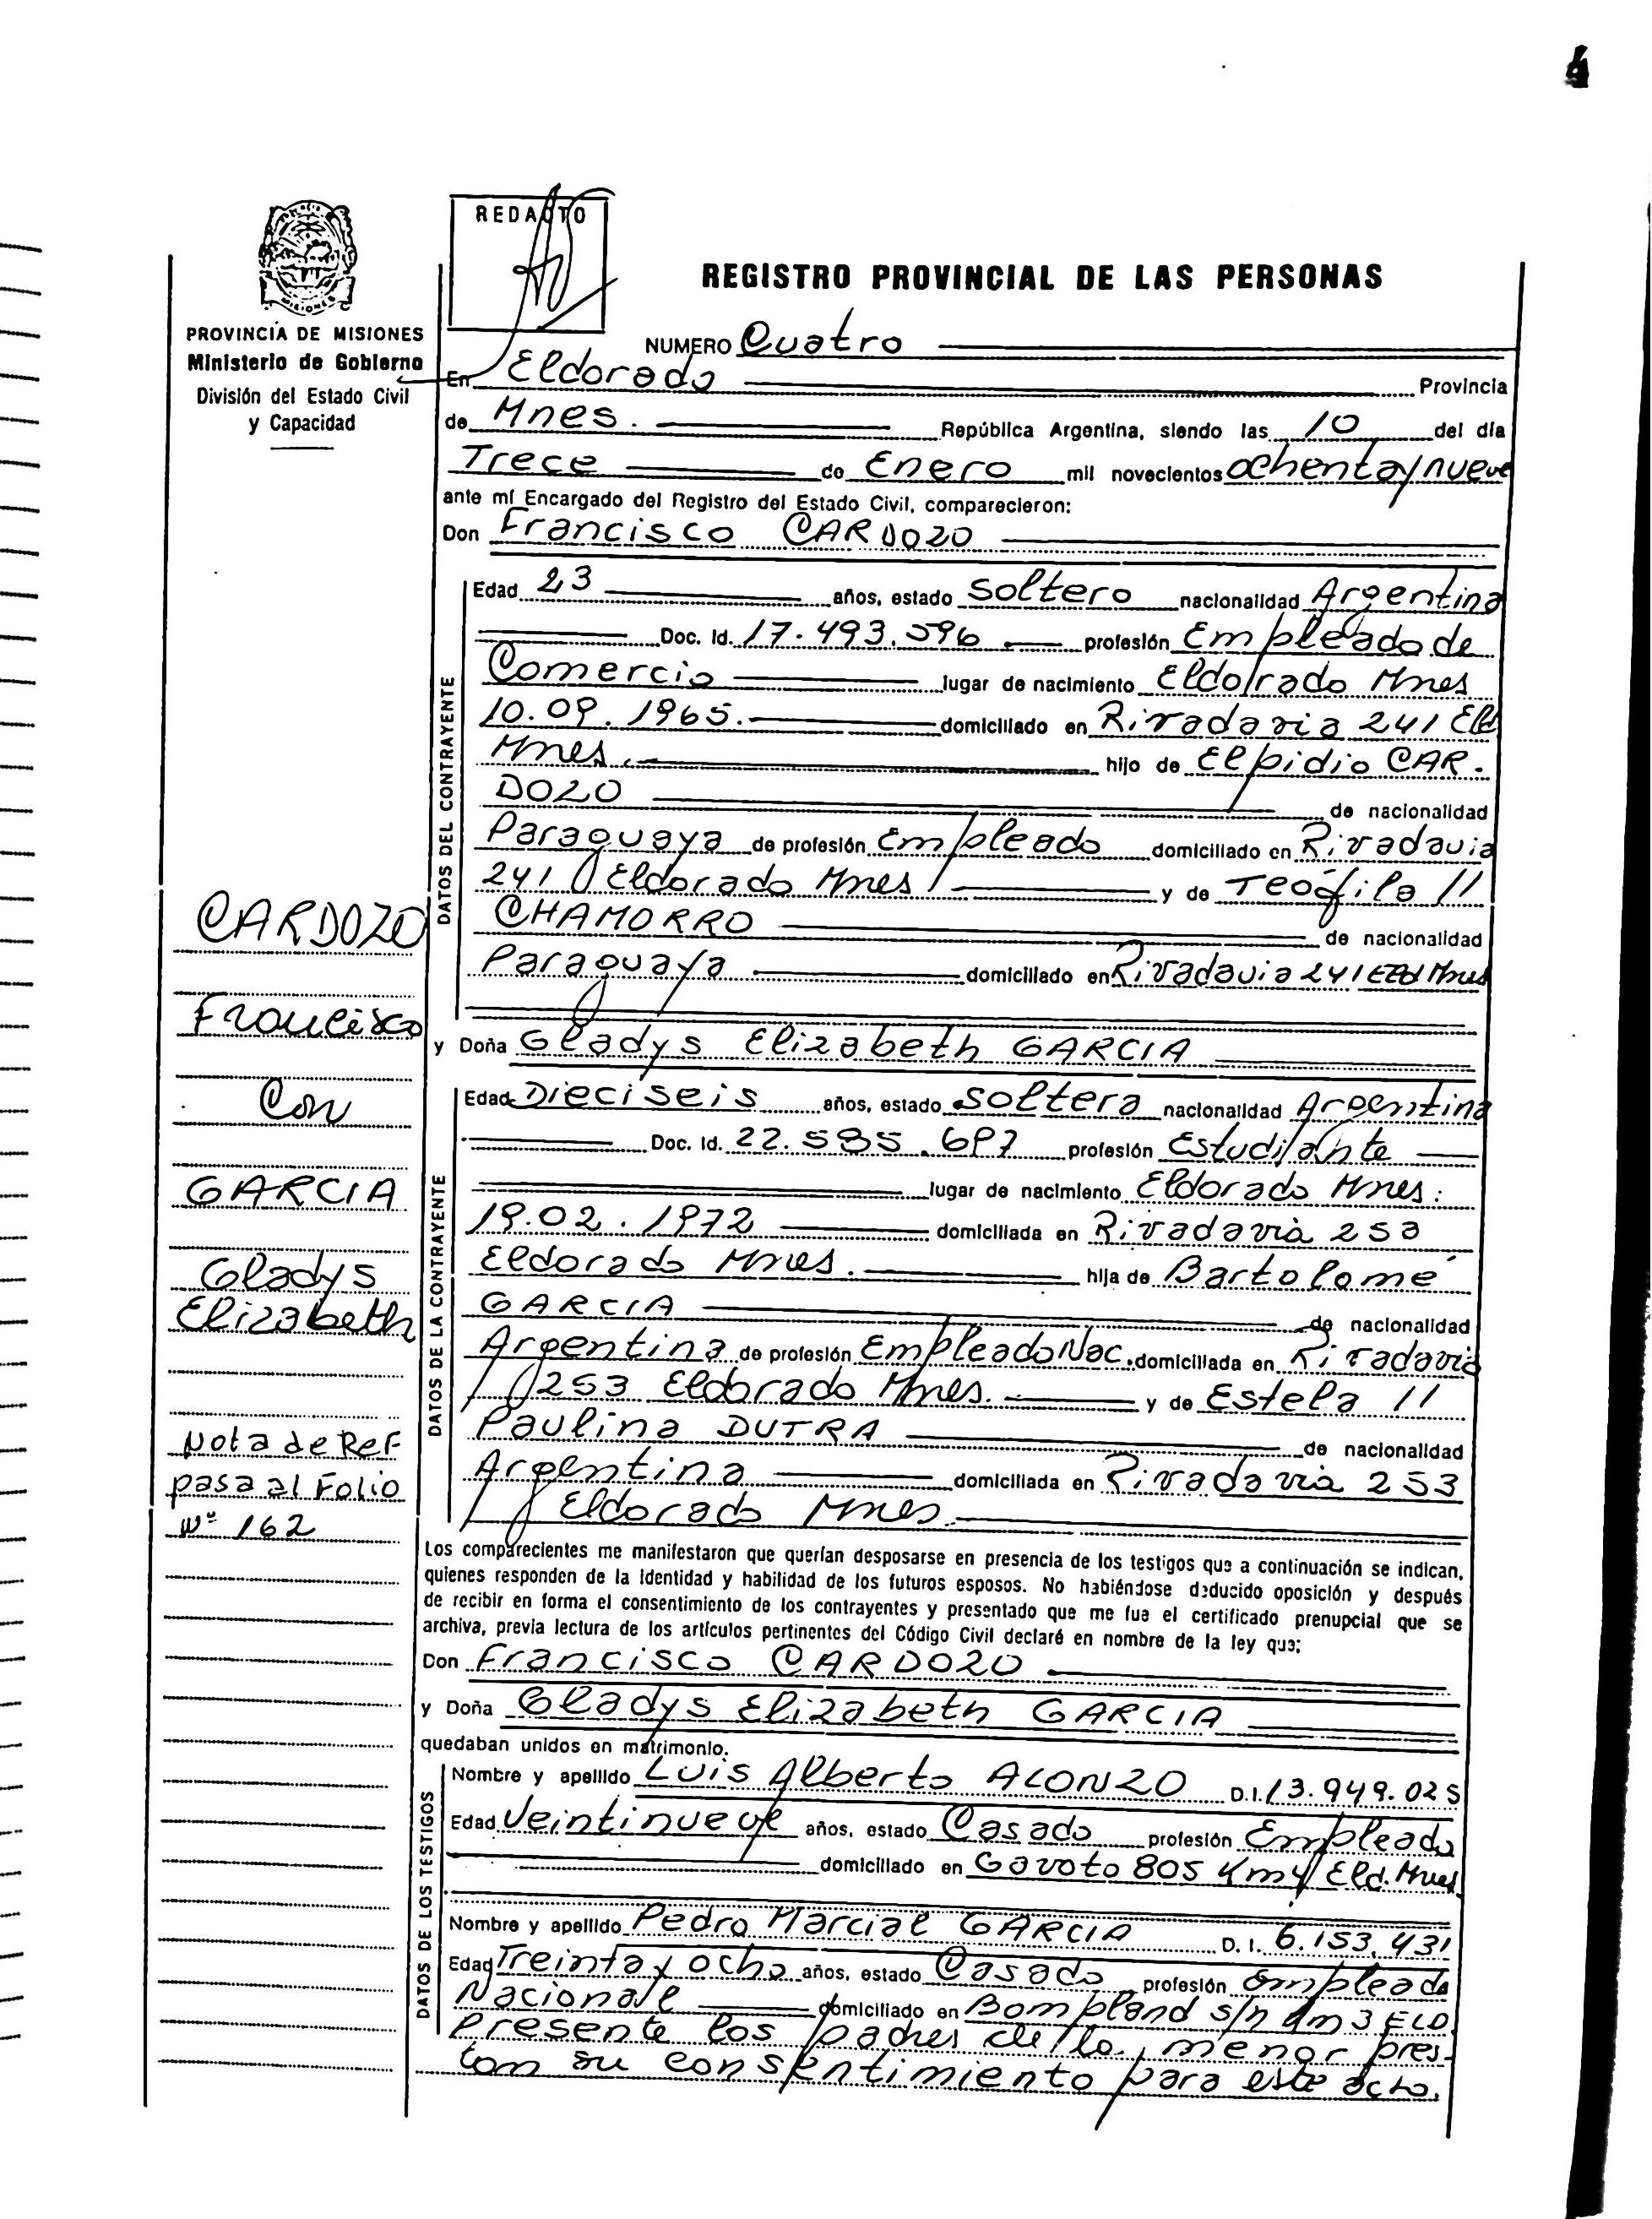 4
REDACTO
REGISTRO PROVINCIAL DE LAS PERSONAS
PROVINCIA DE MISIONES
Ministerio de Gobierno
División del Estado Civil
y Capacidad
NUMERO Cuatro
En Eldorado Provincia
de Mnes. República Argentina, siendo las 10 del día
Trece de Enero mil novecientos ochenta y nueve
ante mí Encargado del Registro del Estado Civil, comparecieron:
Don Francisco CARDOZO
DATOS DEL CONTRAYENTE
Edad 23 años, estado soltero nacionalidad Argentina
Doc. Id. 17.493.596 profesión Empleado de
Comercio lugar de nacimiento Eldorado Mnes
10.09.1965. domiciliado en Rivadavia 241 Eld
Mnes. hijo de Elpidio CAR-
DOZO de nacionalidad
Paraguaya de profesión Empleado domiciliado en Rivadavia
241 Eldorado Mnes y de Teófila //
CHAMORRO de nacionalidad
Paraguaya domiciliado en Rivadavia 241 Eld Mnes
y Doña Gladys Elizabeth GARCIA
DATOS DE LA CONTRAYENTE
Edad Dieciseis años, estado soltera nacionalidad Argentina
Doc. Id. 22.585.697 profesión Estudiante
lugar de nacimiento Eldorado Mnes.
19.02.1972 domiciliada en Rivadavia 253
Eldorado Mnes. hija de Bartolomé
GARCIA de nacionalidad
Argentina de profesión Empleado Nac. domiciliada en Rivadavia
253 Eldorado Mnes. y de Estela //
Paulina DUTRA de nacionalidad
Argentina domiciliada en Rivadavia 253
Eldorado Mnes.
CARDOZO
Francisco
Con
GARCIA
Gladys
Elizabeth
Nota de Ref
pasa al Folio
Nº 162
Los comparecientes me manifestaron que querían desposarse en presencia de los testigos que a continuación se indican,
quienes responden de la identidad y habilidad de los futuros esposos. No habiéndose deducido oposición y después
de recibir en forma el consentimiento de los contrayentes y presentado que me fue el certificado prenupcial que se
archiva, previa lectura de los artículos pertinentes del Código Civil declaré en nombre de la ley que:
Don Francisco CARDOZO
y Doña Gladys Elizabeth GARCIA
quedaban unidos en matrimonio.
DATOS DE LOS TESTIGOS
Nombre y apellido Luis Alberto ALONZO D.I. 13.949.025
Edad Veintinueve años, estado Casado profesión Empleado
domiciliado en Gavoto 805 Km 4 Eld. Mnes
Nombre y apellido Pedro Marcial GARCIA D.I. 6.153.431
Edad Treinta y ocho años, estado Casado profesión Empleado
Nacional domiciliado en Bompland s/n Km 3 ELD.
Presente los padres de la menor pres-
tan su consentimiento para este acto.